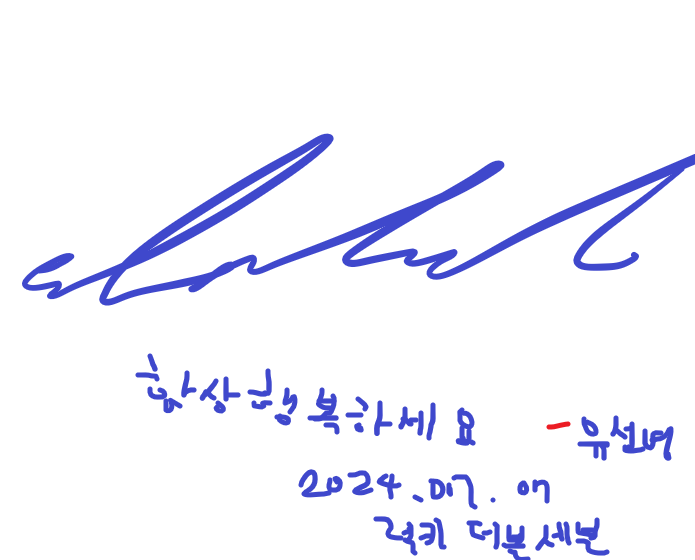 항상 행복하세요
- 유설녀
2024.07.07
럭키 더블 세븐